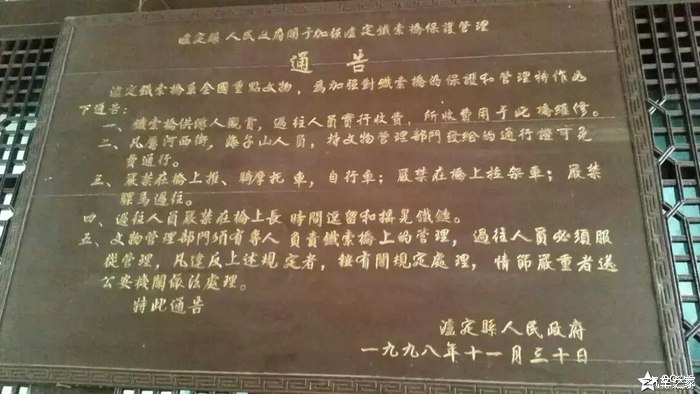 瀘定縣人民政府関于加强瀘定鐵索橋保護管理
通告
瀘定鐵索橋是全國重點文物，爲加强對鐵索橋的保護和管理特作如
下通告：
一、鐵索橋供游人觀賞，過往人員實行收費，所收費用于此橋維修。
二、凡居河西街，海子山人員，持文物管理部門發給的通行證可免
費通行。
三、嚴禁在橋上推、騎摩托車，自行車；嚴禁在橋上拉架車；嚴禁
騾馬過往。
四、過往人員嚴禁在橋上長時間逗留和摇晃鐵鏈。
五、文物管理部門須有專人負責鐵索橋上的管理，過往人員必須服
從管理，凡違反上述規定者，按有關規定處理，情節嚴重者送
公安機關依法處理。
特此通告
瀘定縣人民政府
一九九八年十一月三十日
汽车之家